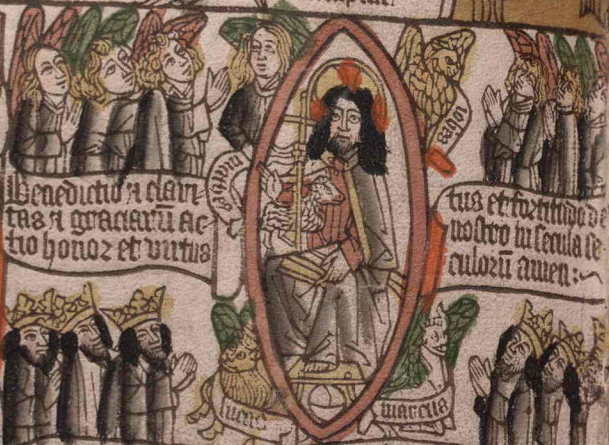 Benedictio ⁊ clari
tas ⁊ graciarū ac
tio honor et virtus
tus et fortitudo
nostro in secula se
culorū amen:
lucas
marcus